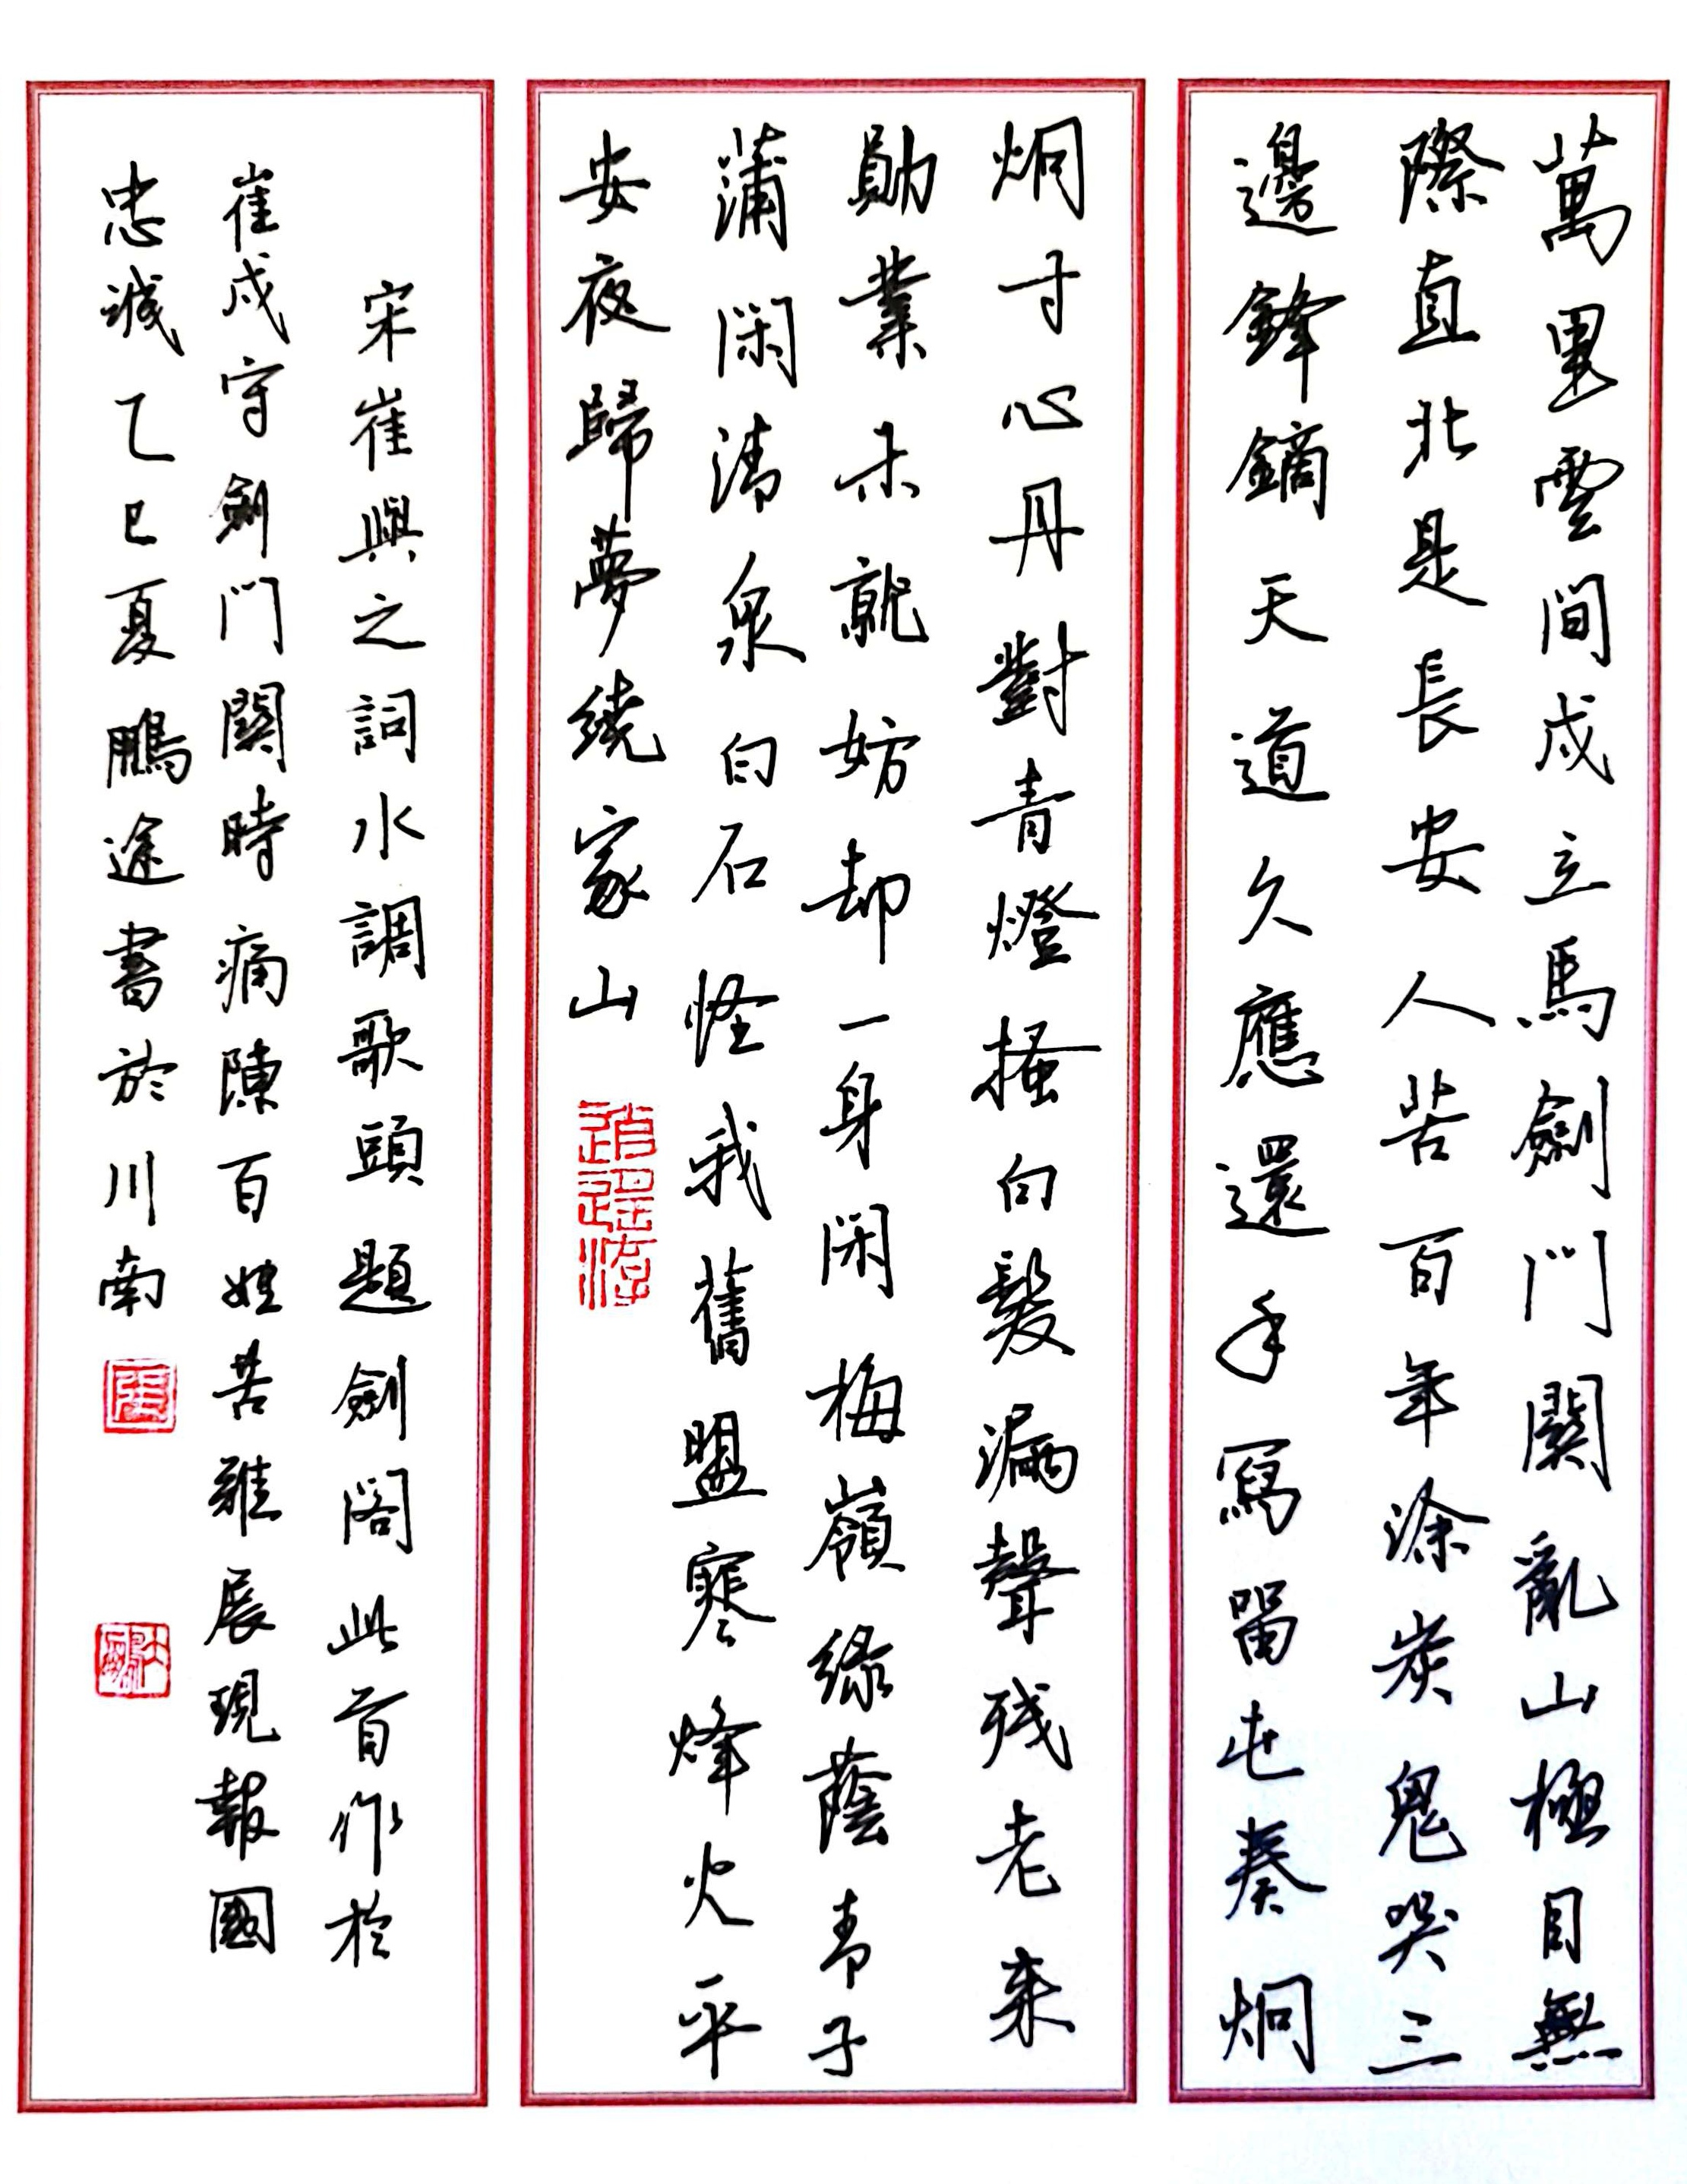 萬里雲間戍立馬劍門關亂山極目無
際直北是長安人苦百年涂炭鬼哭三
邊鋒鏑天道久應還手寫留屯奏炯
炯寸心丹對青燈搔白髮漏聲残老来
勛業未就妨却一身閑梅嶺綠蔭青子
蒲閑清泉白石怪我舊盟寒烽火平
安夜歸夢繞家山
逍遥游
宋崔與之詞水調歌頭題劍閣此首作於
崔戍守劍門關時痛陳百姓苦難展現報國
忠誠乙巳夏鵬途書於川南